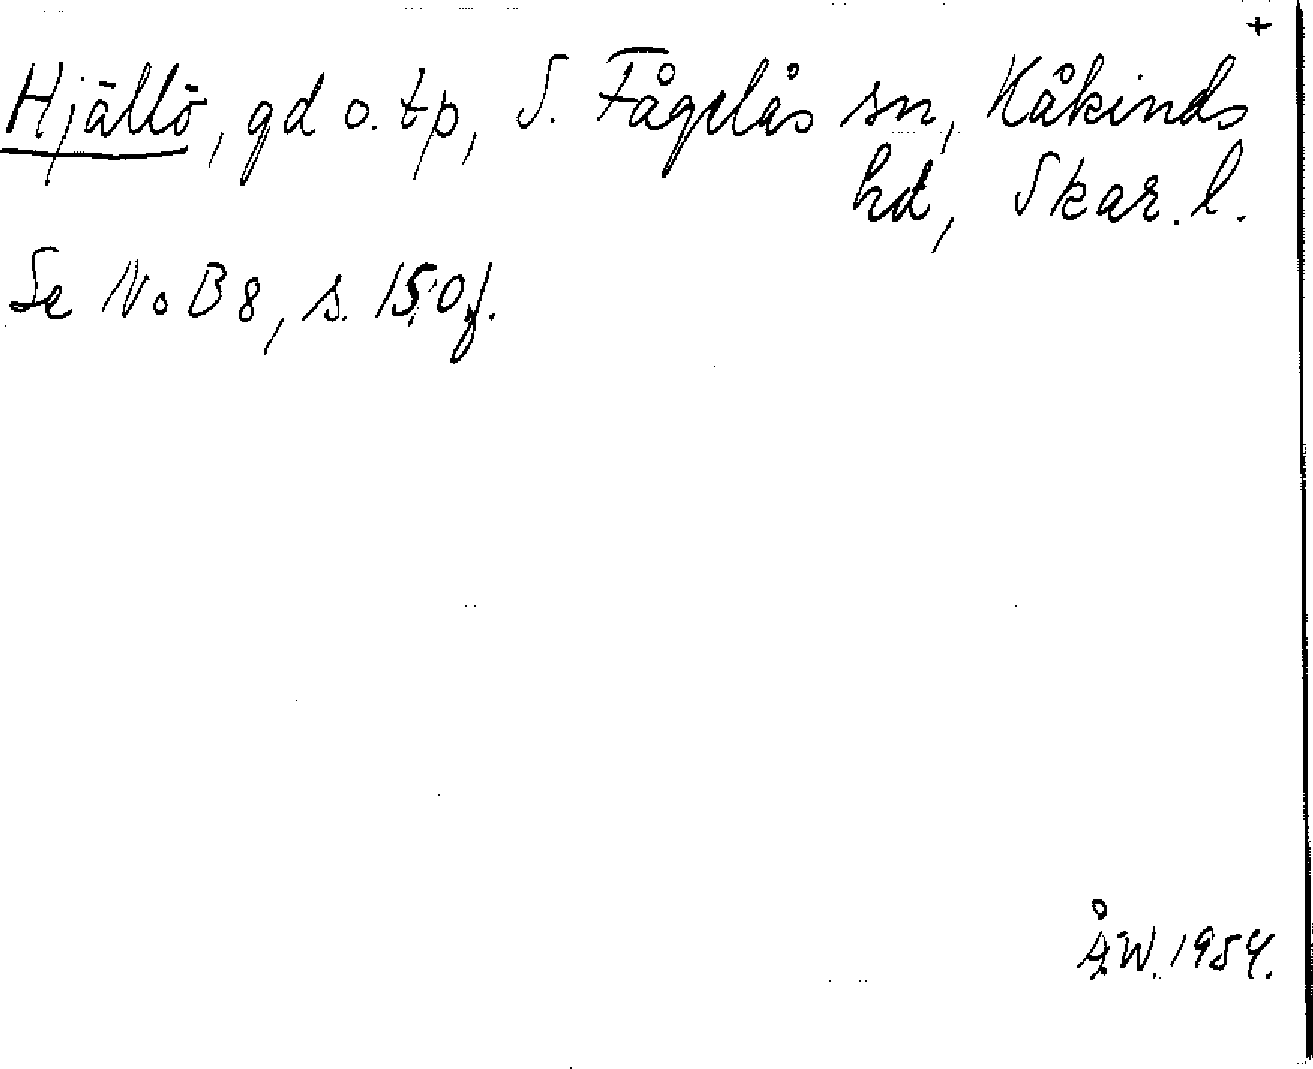 +
Hjällö, gd o. tp, S. Fågelås sn, Kåkinds
hd, Skar. l.
Se NoB 8, s. 150f.
Å.W. 1954.